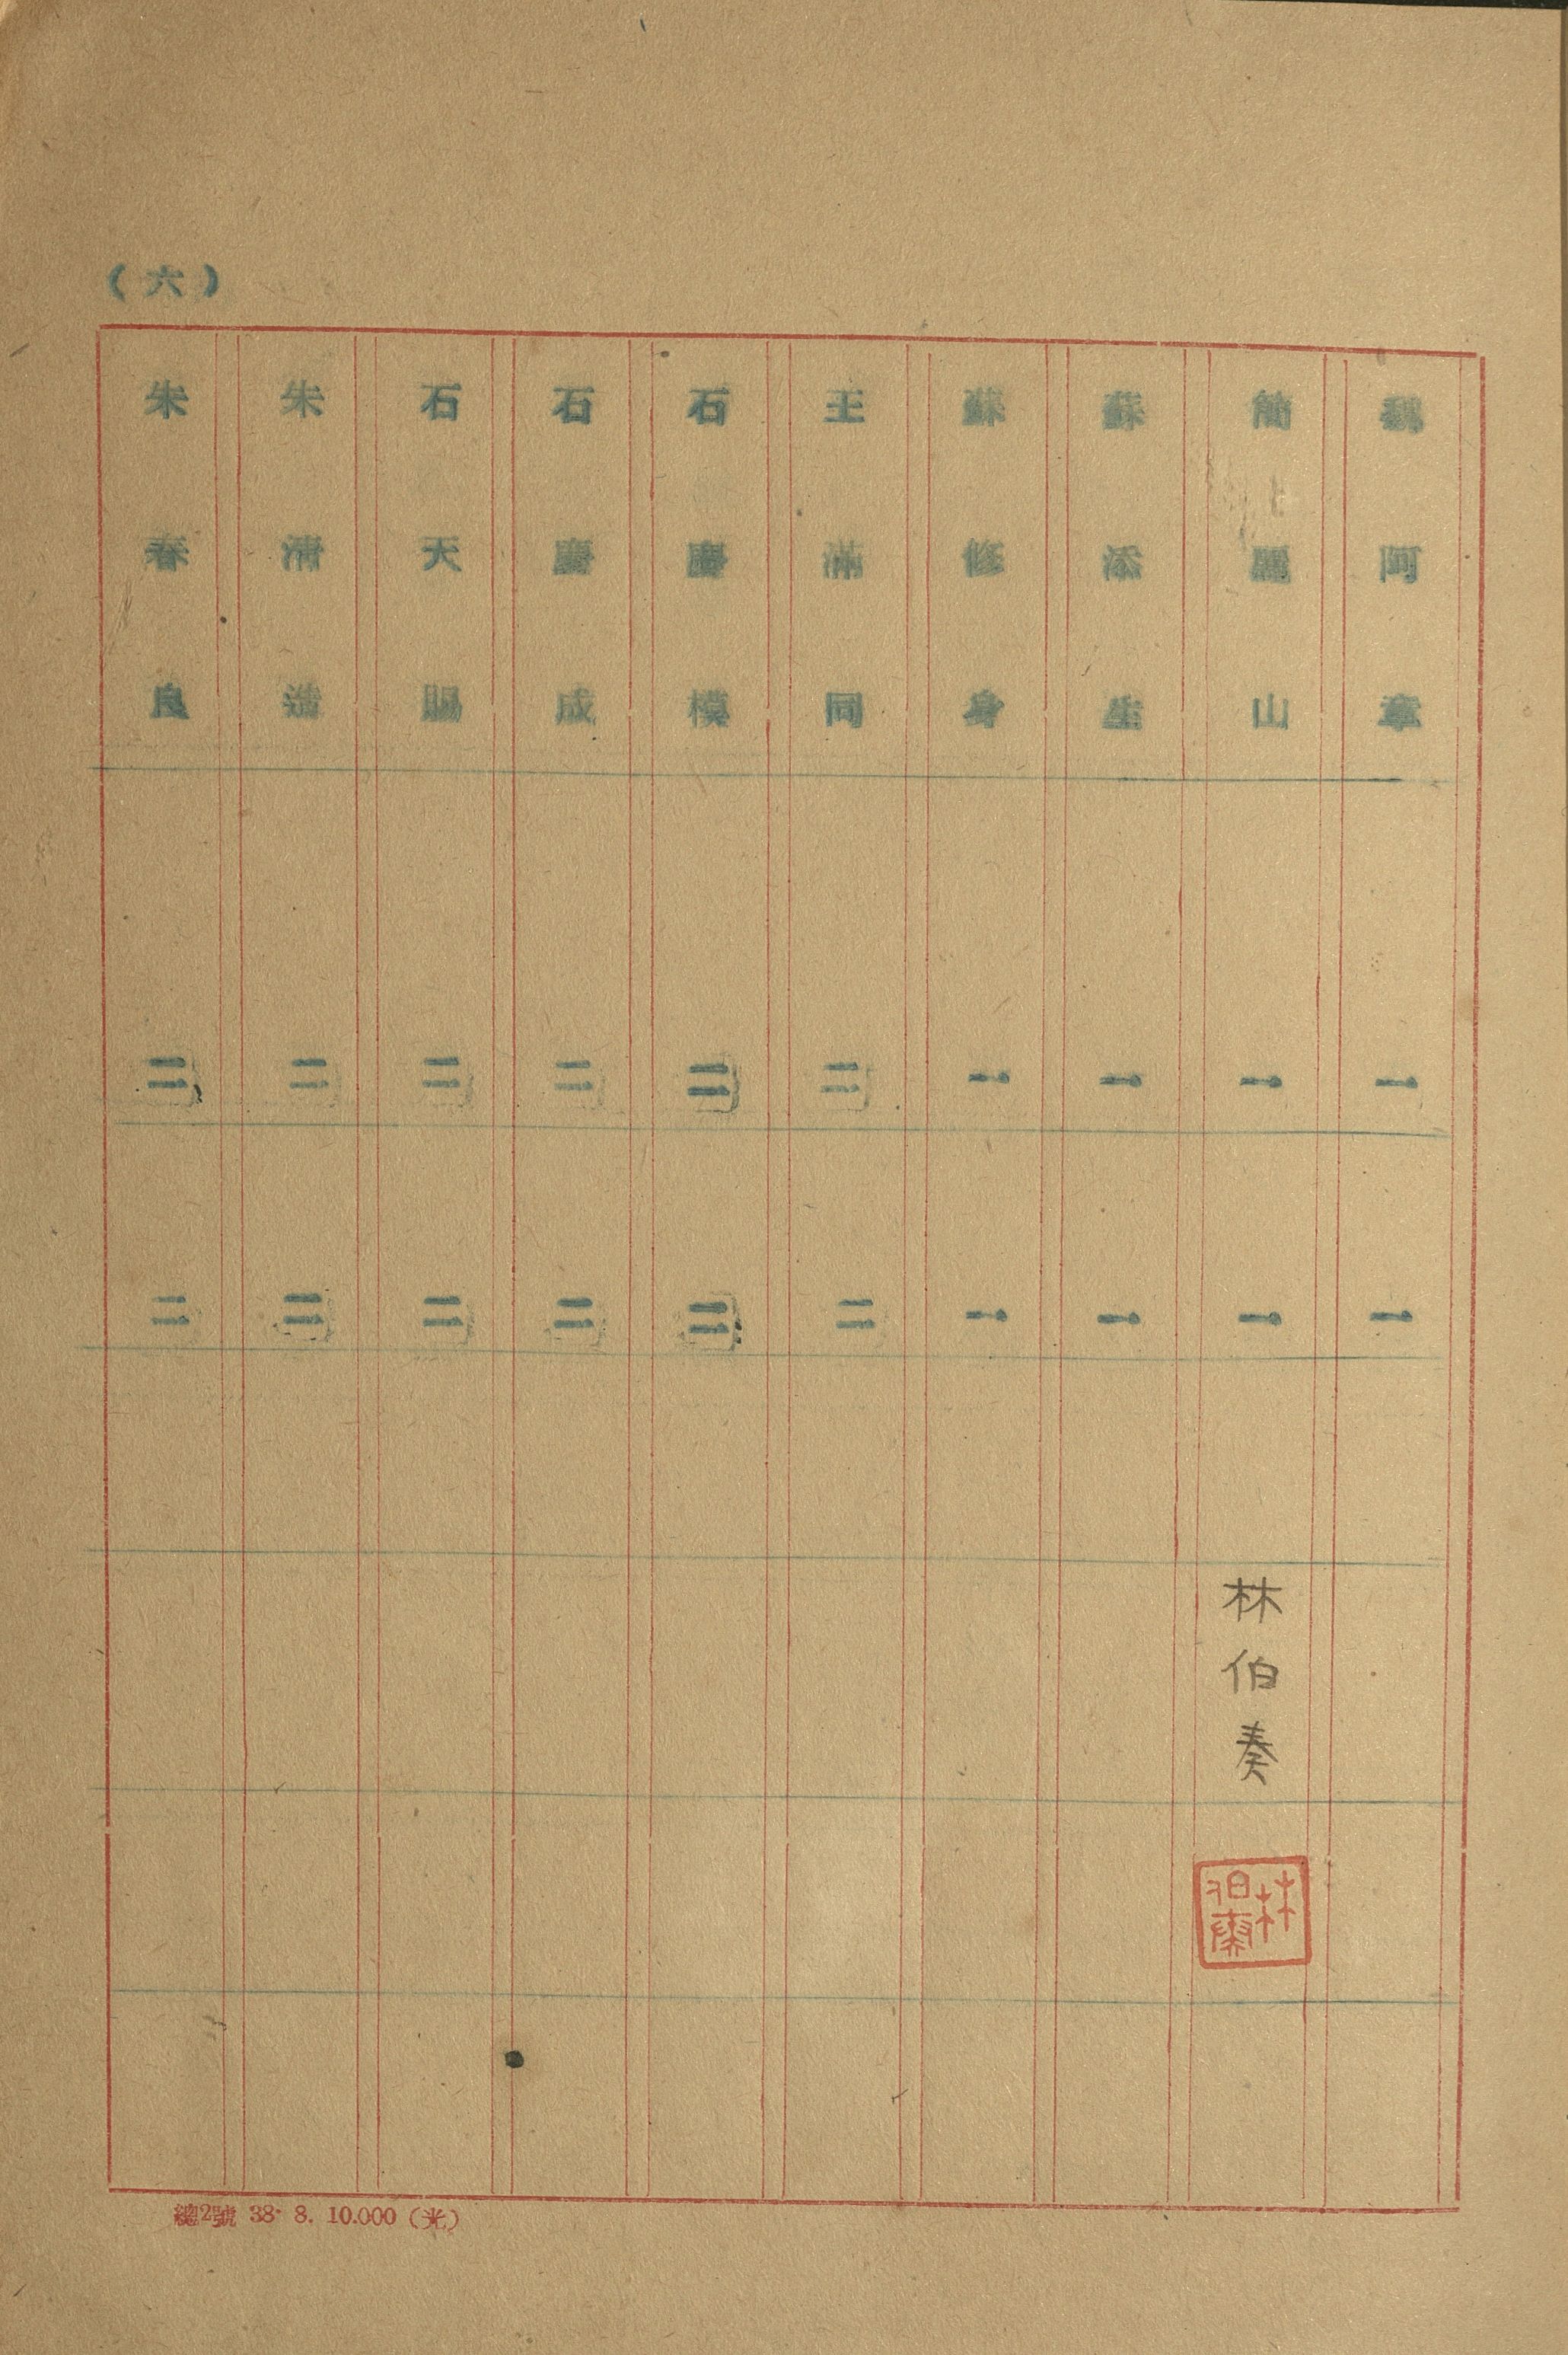 (六)
魏阿章 一 一
簡麗山 一 一 林伯奏
林伯奏
蘇添生 一 一
蘇修身 一 一
王滿同 二 二
石慶模 二 二
石慶成 二 二
石天賜 二 二
朱清造 二 二
朱春良 二 二
總2號 38. 8. 10.000 (光)